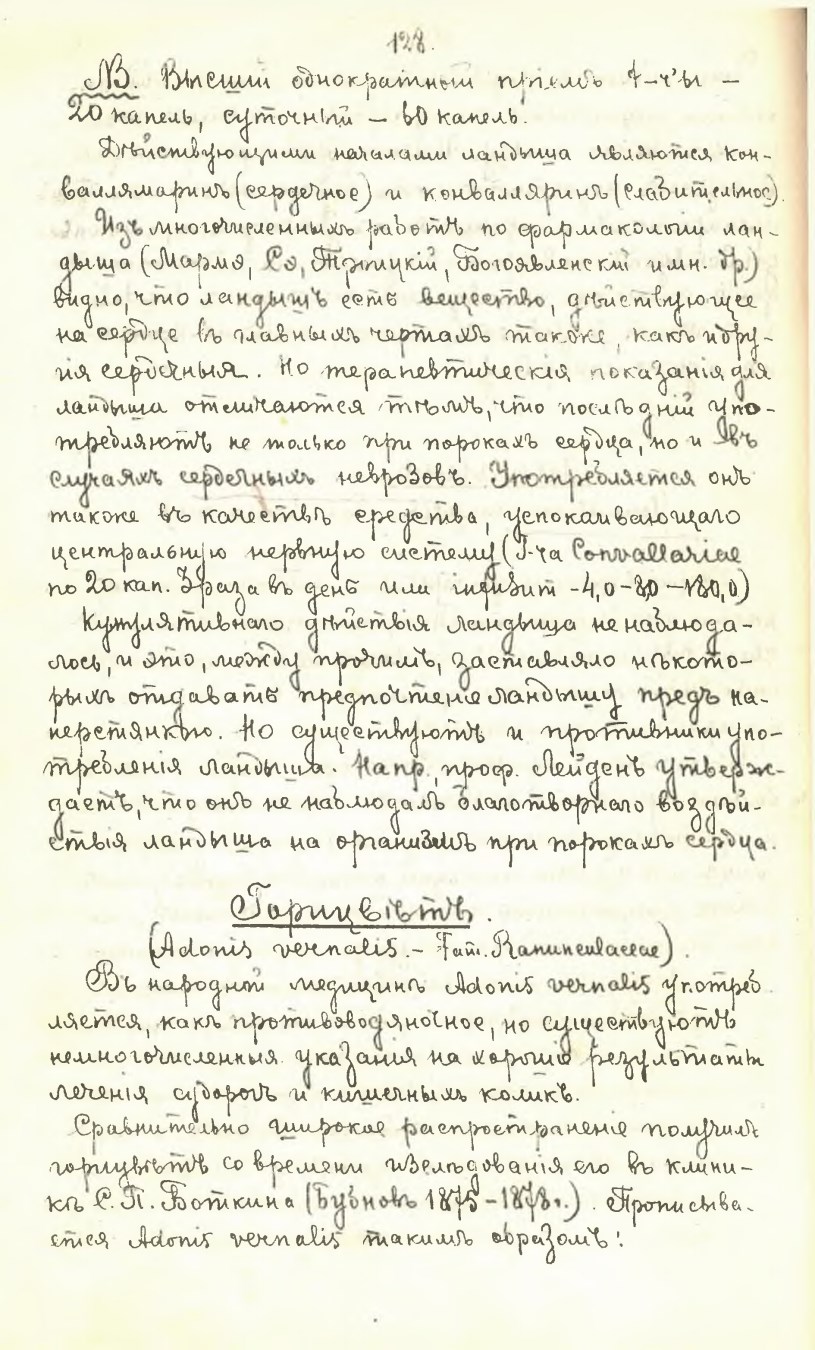 128.
NB. Высшій однократный пріемъ t-ч'ы —
20 капель, суточный — 60 капель.
Дѣйствующими началами ландыша являются кон-
валлямаринъ (сердечное) и конвалляринъ (слабительное).
Изъ многочисленныхъ работъ по фармакологіи лан-
дыша (Марме, Сэ, Троицкій, Богоявленскій и мн. др.)
видно, что ландышъ есть вещество, дѣйствующее
на сердце въ главныхъ чертахъ также, какъ и дру-
гія сердечныя. Но терапевтическія показанія для
ландыша отличаются тѣмъ, что послѣдній упо-
требляютъ не только при порокахъ сердца, но и въ
случаяхъ сердечныхъ неврозовъ. Употребляется онъ
также въ качествѣ средства, успокаивающаго
центральную нервную систему (T-ra Convallariae
по 20 кап. 3 раза въ день или инфузит -4,0-8,0 -180,0)
Кумулятивнаго дѣйствія ландыша не наблюда-
лось, и это, между прочимъ, заставляло нѣкото-
рыхъ отдавать предпочтеніе ландышу предъ на-
перстянкою. Но существуютъ и противники упо-
требленія ландыша. Напр., проф. Лейденъ утверж-
даетъ, что онъ не наблюдалъ благотворнаго воздѣй-
ствія ландыша на организмъ при порокахъ сердца.
Горицвѣтъ.
(Adonis vernalis. - Fam. Ranunculaceae).
Въ народной медицинѣ Adonis vernalis употреб
ляется, какъ противоводяночное, но существуютъ
немногочисленныя указанія на хорошіе результаты
леченія судорогъ и кишечныхъ коликъ.
Сравнительно широкое распространеніе получилъ
горицвѣтъ со времени изслѣдованія его въ клини-
кѣ С. П. Боткина (Бубновъ 1875-1878г.). Прописыва-
ется Adonis vernalis такимъ образомъ: